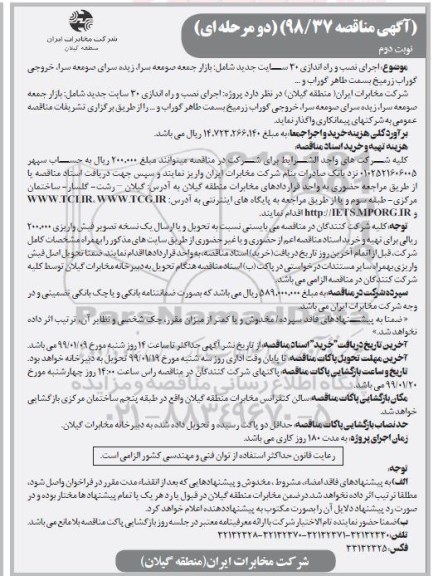 شرکت مخابرات ایران
منطقه گیلان
(آگهی مناقصه ۹۸/۳۷) (دو مرحله ای)
نوبت دوم
موضوع: اجرای نصب و راه اندازی ۳۰ سایت جدید شامل: بازار جمعه صومعه سرا، زیده سرای صومعه سرا، خروجی
گوراب زرمیخ بسمت طاهر گوراب و ...
شرکت مخابرات ایران( منطقه گیلان) در نظر دارد پروژه: اجرای نصب و راه اندازی ۳۰ سایت جدید شامل: بازار جمعه
صومعه سرا، زیده سرای صومعه سرا، خروجی گوراب زرمیخ بسمت طاهر گوراب و ... را از طریق برگزاری تشریفات مناقصه
عمومی به شرکتهای پیمانکاری واگذار نماید.
برآورد کلی هزینه خرید و اجرا جمعا، به مبلغ ۱۴,۷۲۳,۲۶۶,۱۴۰ ریال می باشد.
هزینه تهیه و خرید اسناد مناقصه:
کلیه شرکت های واجد الشرایط برای شرکت در مناقصه میتوانند مبلغ ۲۰۰,۰۰۰ ریال به حساب سپهر
۰۱۰۲۵۲۱۶۰۶۰۰۵ نزد بانک صادرات بنام شرکت مخابرات ایران واریز نمایند و سپس جهت دریافت اسناد مناقصه یا
از طریق مراجعه حضوری به واحد قراردادهای مخابرات منطقه گیلان به آدرس: گیلان – رشت- گلسار- ساختمان
مرکزی- طبقه سوم و یا از طریق مراجعه به پایگاه های اینترنتی به آدرس: WWW.TCI.IR، WWW.TCG.IR
و http://IETS.MPORG.IR اقدام نمایند.
توجه: کلیه شرکت کنندگان در مناقصه می بایستی نسبت به تحویل و یا ارسال یک نسخه تصویر فیش واریزی ۲۰۰,۰۰۰
ریالی برای تهیه و خرید اسناد مناقصه اعم از حضوری و یا غیر حضوری از طریق سایت های مذکور را بهمراه مشخصات کامل
شرکت، قبل از اتمام آخرین روز تاریخ دریافت (خرید) اسناد مناقصه، به واحد قراردادها اقدام نمایند. ضمنا تحویل اصل فیش
واریزی بهمراه سایر مستندات درخواستی در پاکت (ب) اسناد مناقصه هنگام تحویل به دبیرخانه مخابرات گیلان توسط کلیه
شرکت کنندگان در مناقصه الزامی می باشد.
سپرده شرکت در مناقصه: به مبلغ ۵۸۹,۰۰۰,۰۰۰ ریال می باشد که بصورت ضمانتنامه بانکی و یا چک بانکی تضمینی و در
وجه شرکت مخابرات ایران می باشد.
« ضمنا به پیشنهادهای فاقد سپرده/ مخدوش و یا کمتر از میزان مقرر، چک شخصی و نظایر آن، ترتیب اثر داده
نخواهد شد.»
آخرین تاریخ دریافت "خرید" اسناد مناقصه: از تاریخ نشر آگهی حداکثر تا ساعت ۱۴ روز شنبه مورخ ۹۹/۰۱/۰۹ می باشد.
آخرین مهلت تحویل پاکات مناقصه: تا پایان وقت اداری روز سه شنبه مورخ ۹۹/۰۱/۱۹ تحویل به دبیرخانه خواهد بود.
تاریخ و ساعت بازگشایی پاکات مناقصه: پاکتهای شرکت کنندگان در مناقصه راس ساعت ۱۴:۰۰ روز چهارشنبه مورخ
۹۹/۰۱/۲۰ می باشد.
مکان بازگشایی پاکات مناقصه: سالن کنفرانس مخابرات منطقه گیلان واقع در طبقه پنجم ساختمان مرکزی بازگشایی
خواهد شد.
حد نصاب بازگشایی پاکات مناقصه: حداقل دو پاکت رسیده و تحویل داده شده به دبیرخانه مخابرات گیلان.
زمان اجرای پروژه: به مدت ۱۸۰ روز کاری می باشد.
رعایت قانون حداکثر استفاده از توان فنی و مهندسی کشور الزامی است.
توجه:
الف) به پیشنهادهای فاقد امضاء، مشروط، مخدوش و پیشنهادهایی که بعد از انقضاء مدت مقرر در فراخوان واصل شود،
مطلقا ترتیب اثر داده نخواهد شد. در ضمن مخابرات منطقه گیلان در قبول یا رد هر یک یا تمام پیشنهادها مختار بوده و در
صورت رد پیشنهاد دلایل آن را بصورت مکتوب به پیشنهاد دهنده اعلام خواهد کرد.
ب) ضمنا حضور نماینده تام الاختیار شرکت با ارائه معرفینامه معتبر در جلسه روز بازگشایی پاکت مناقصه بلامانع می باشد.
تلفن: ۳۲۱۳۲۲۳۰-۳۲۱۳۲۲۷۱-۳۲۱۳۲۲۷۰-۳۲۱۳۲۲۲۸
فکس: ۳۲۱۳۲۲۲۵
شرکت مخابرات ایران(منطقه گیلان)
پایگاه اطلاع رسانی مناقصه و مزایده
۰۲۱-۸۸۳۴۹۶۷۰-۵